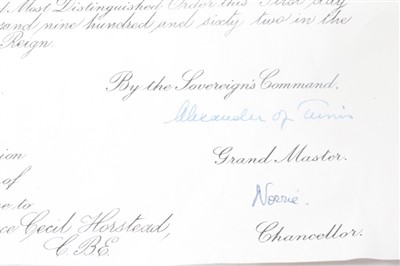 Most Distinguished Order this First day
sand nine hundred and sixty two in the
Reign.
By the Sovereign's Command,
Alexander of Tunis
Grand Master.
ion
of
e to
ce Cecil Horstead,
C.B.E.
Norrie.
Chancellor.